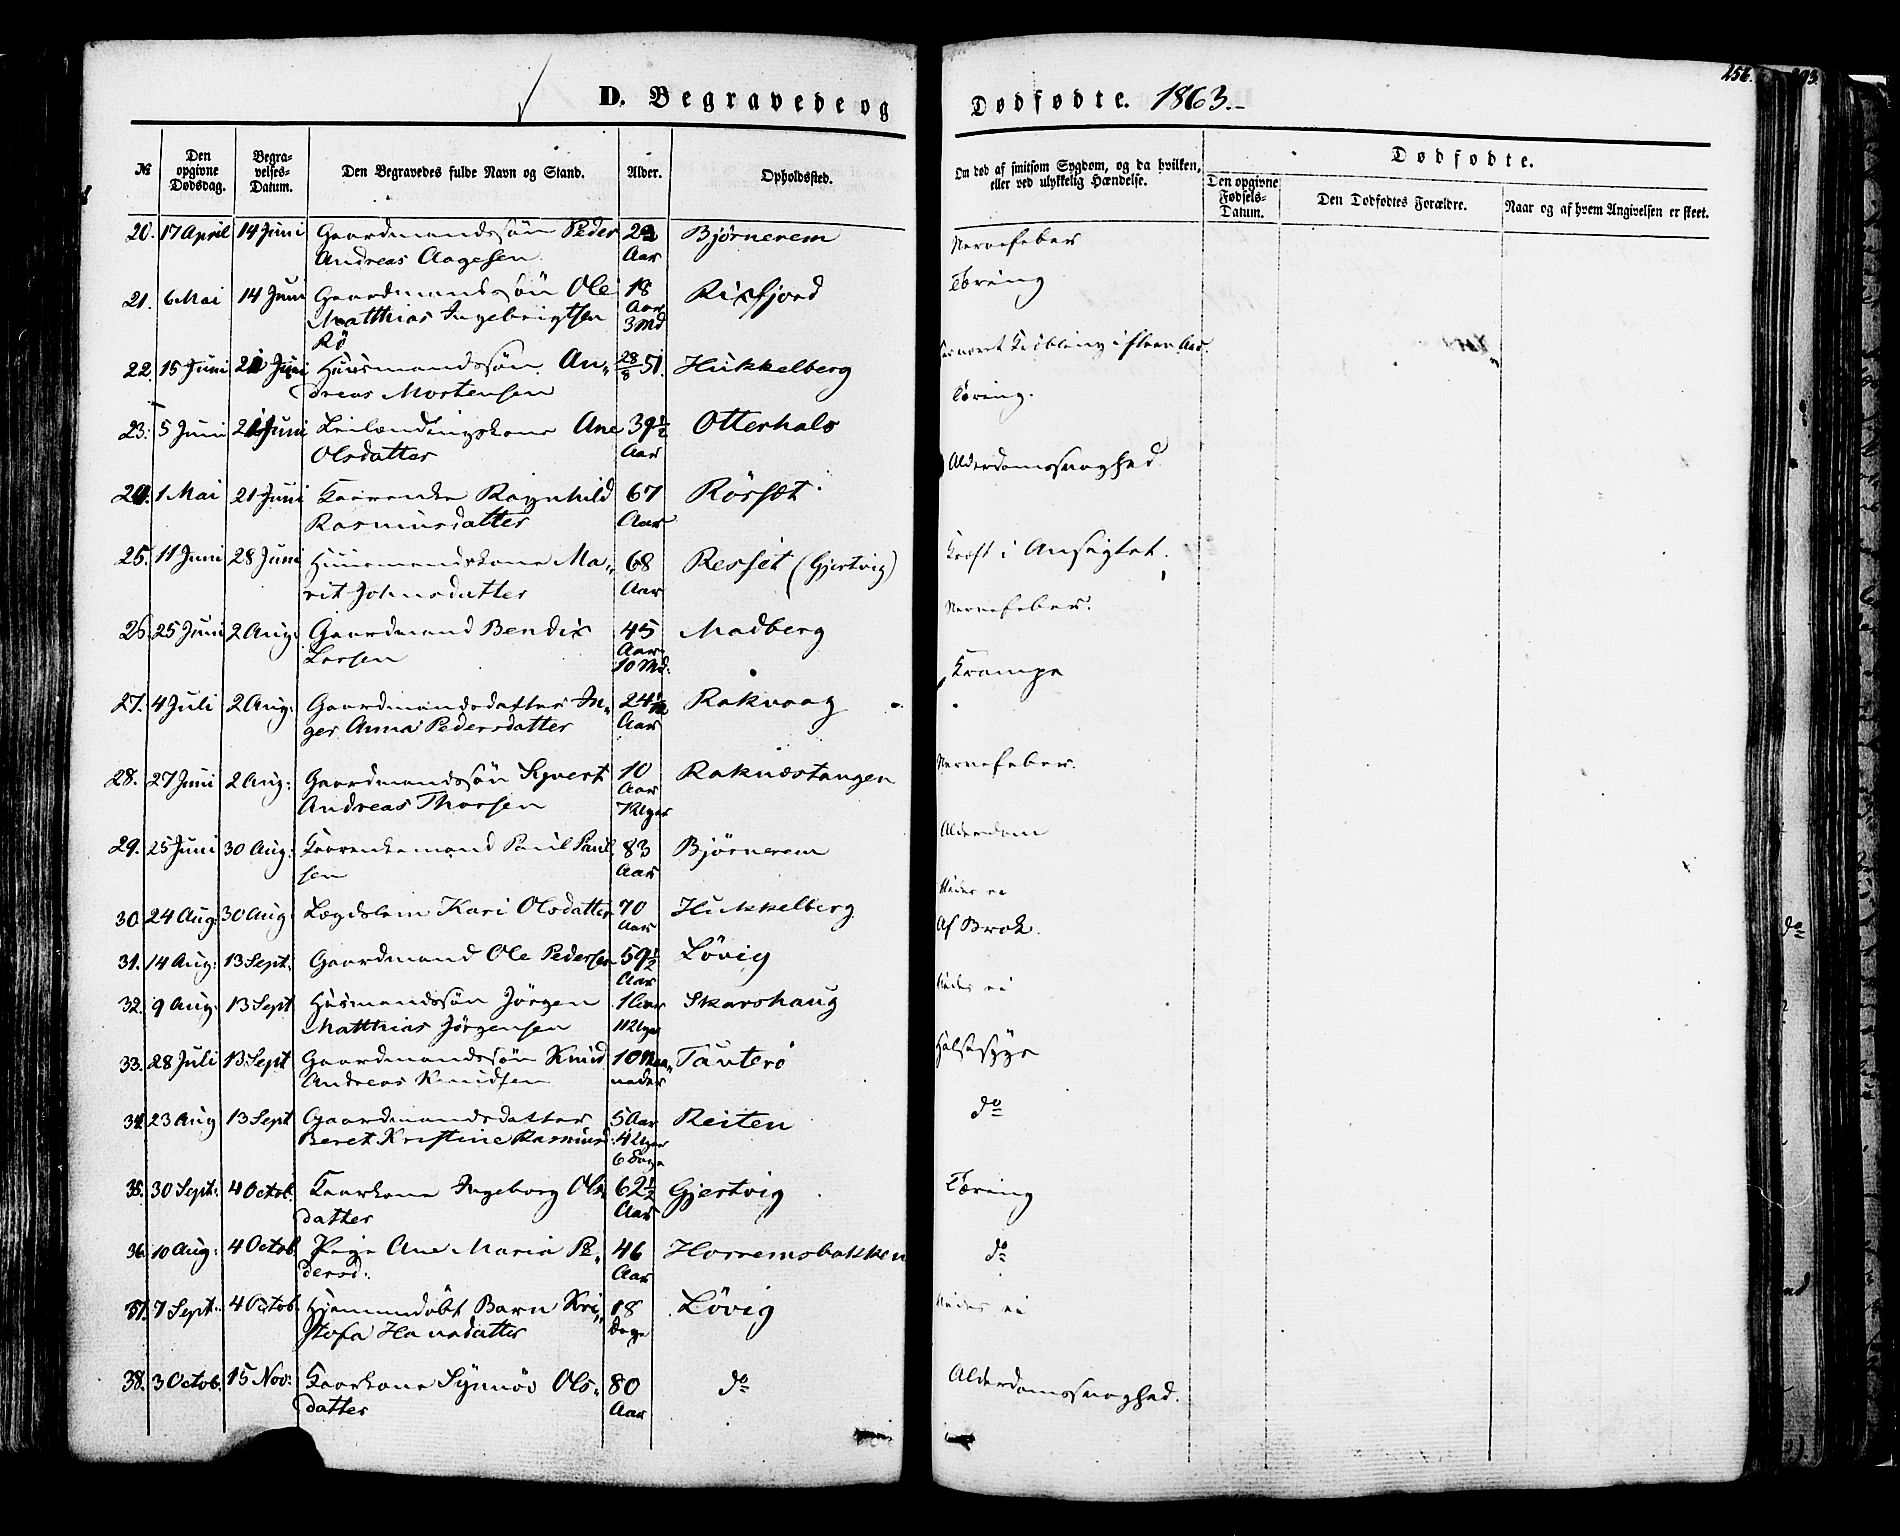 D. Begravede og Dødfødte. 1863.
256.
№
Den opgivne Dødsdag.
Begravelses-Datum.
Den Begravedes fulde Navn og Stand.
Alder.
Opholdssted.
Om død af smitsom Sygdom, og da hvilken, eller ved ulykkelig Hændelse.
Dødfødte.
Den opgivne Fødsels-Datum.
Den Dødfødtes Forældre.
Naar og af hvem Angivelsen er skeet.
20. 17 April 14 Juni Gaardmandssön Peder Bjørnerem Nervefeber
Andreas Aagesen Aar
21. 6 Mai 14 Juni Gaardmandssön Ole 18 Rixfjord Tæring
Matthias Ingebrigtsen Aar
Rö 3 Md
22. 15 Juni 21 Juni Huusmandssön An- 28/8 51. Hukkelberg
dreas Mortensen
23. 5 Juni 21 Juni Leilændingskone Ane 39½ Otterhals Tæring.
Olsdatter Aar
24. 1 Mai 21 Juni Kaarenke Ragnhild 67 Rörset Alderdomssvaghed
Rasmusdatter Aar
25. 11 Juni 28 Juni Huusmandskone Ma- 68 Resset (Gjertvig) Kræft i Ansigtet.
rit Johnsdatter Aar
26. 25 Juni 2 Aug: Gaardmand Bendix 45 Madberg Nervefeber.
Larsen Aar
10 Md.
27. 4 Juli 2 Aug: Gaardmandsdatter In- Rakvaag Krampe
ger Anna Pedersdatter Aar
28. 27 Juni 2 Aug: Gaardmandssön Syvert 10 Raknæstangen Nervefeber.
Andreas Thorsen Aar
7 Uger
29. 25 Juni 30 Aug: Kaarenkemand Paul Paul 83 Bjørnerem Alderdom
sen Aar
30. 24 Aug: 30 Aug: Lægdslem Kari Olsdatter 70 Hukkelberg Vides ei
Aar
31. 14 Aug: 13 Sept: Gaardmand Ole Pedersen 59½ Lövig Af Brok.
Aar
32. 9 Aug: 13 Sept Husmandssön Jörgen 1 Aar Skarshaug Vides ei
Matthias Jörgensen 11 Uger
33. 28 Juli 13 Sept Gaardmandssön Knud 10 Maa- Tauterö Halssyge
Andreas Knudsen neder
34. 23 Aug 13 Sept Gaardmandsdatter 5 Aar Reiten do
Beret Kristine Rasmusd. 4 Uger
6 Dage
35. 30 Sept: 4 Octob. Kaarkone Ingeborg Ols- 62½ Gjertvig Tæring
datter Aar
36. 10 Aug: 4 Octob Pige Ane Maria Pe- 46 Horremsbakken do
dersd: Aar
37. 7 Sept: 4 Octob. Hjemmedöbt Barn Kri- 18 Lövig Vides ei
stofa Hansdatter Dage
38. 3 Octob. 15 Nov: Kaarkone Synnöv Ols- 80 do Alderdomssvaghed.
datter Aar